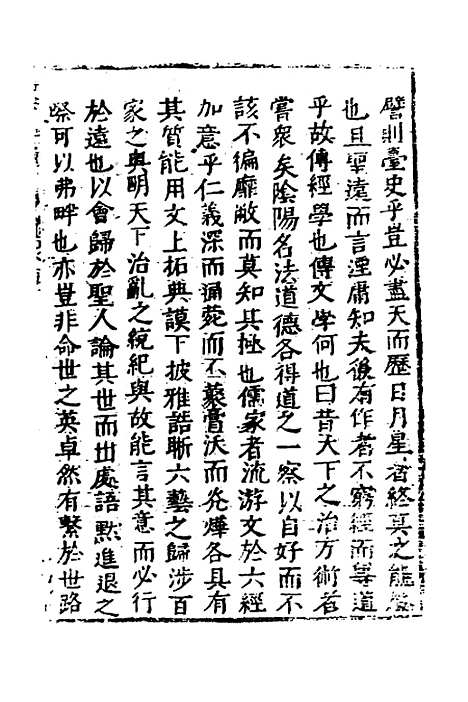 譬則臺史乎豈必盡天而歷日月星者終莫之能
也且聖遠而言湮庸知夫後有作者不窮經而畧道
乎故傳經學也傳文學何也曰昔天下之治方術者
嘗衆矣陰陽名法道德各得道之一察以自好而不
該不徧靡敝而莫知其挫也儒家者流游文於六經
加意乎仁義深而涵菀而不蘗膏沃而光燁各具有
其質能用文上拓典謨下披雅誥晰六藝之歸涉百
家之與明天下治亂之統紀與故能言其意而必行
於遠也以會歸於聖人論其世而出處語默進退之
祭可以弗畔也亦豈非命世之英卓然有繫於世路